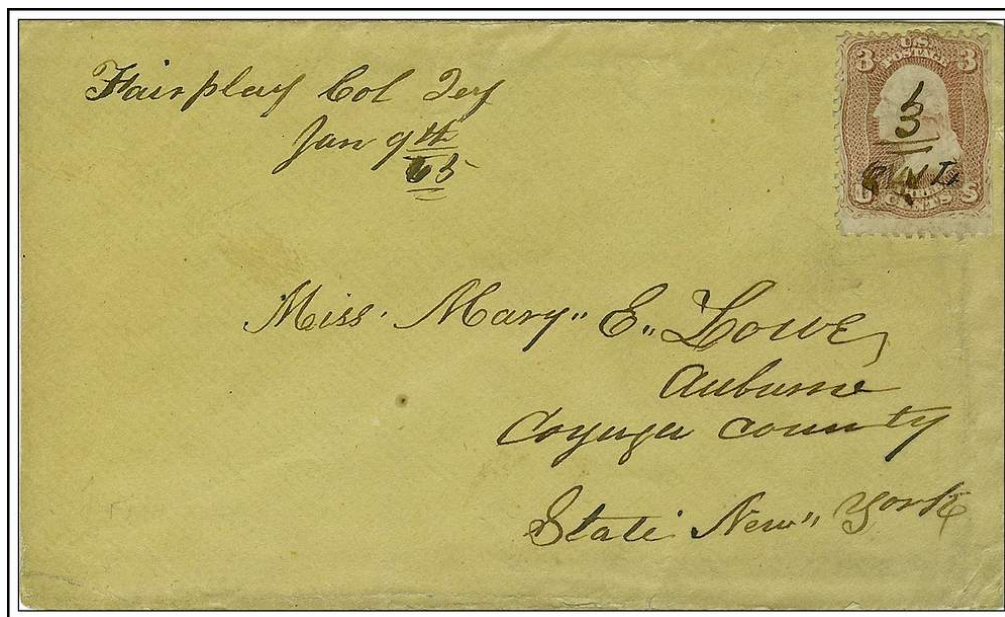 Fairplay Col Ter
Jan 9th
65
3 U.S. 3
POSTAGE
3
U CENTS S
Miss. Mary" E" Lowe
Auburne
Coyuga County
State New" York